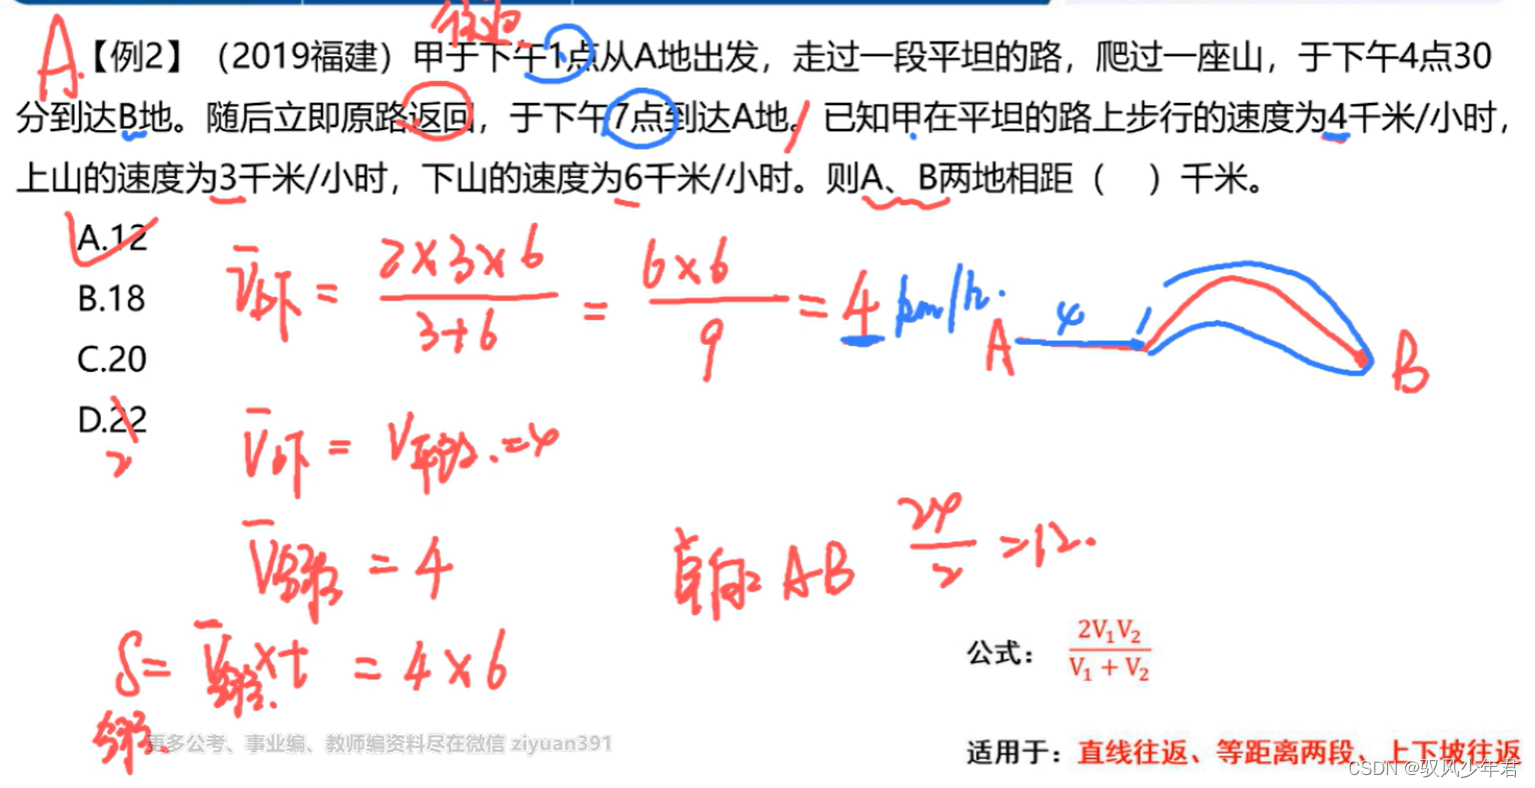 往返
A.【例2】（2019福建）甲于下午1点从A地出发，走过一段平坦的路，爬过一座山，于下午4点30
分到达B地。随后立即原路返回，于下午7点到达A地。已知甲在平坦的路上步行的速度为4千米/小时，
上山的速度为3千米/小时，下山的速度为6千米/小时。则A、B两地相距（　）千米。
A.12
B.18
C.20
D.22
2
V上下 = 2×3×6 / 3+6 = 6×6 / 9 = 4 km/h.
A 4 B
V上下 = V平均. =4
V = 4
S = V ×t = 4×6
单向: A-B 24/2 =12.
公式： 2V₁V₂ / V₁ + V₂
更多公考、事业编、教师编资料尽在微信 ziyuan391
适用于：直线往返、等距离两段、上下坡往返
CSDN @驭风少年君